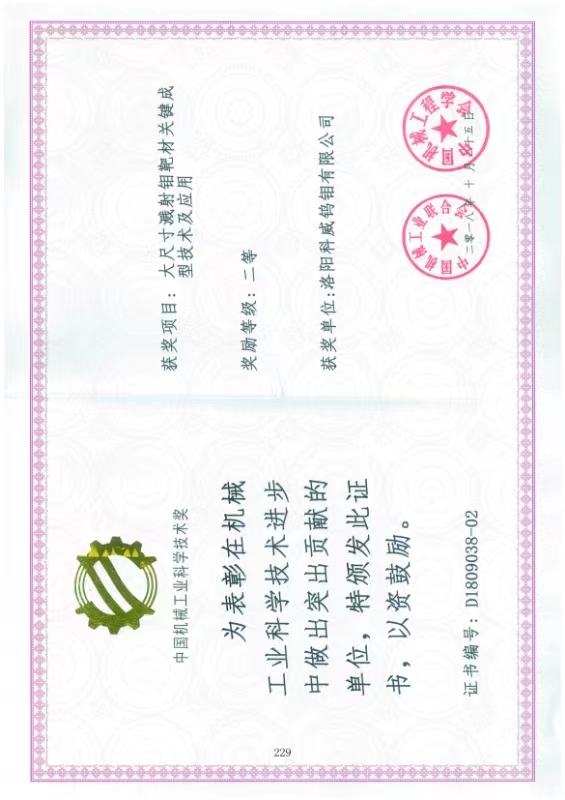 中国机械工业科学技术奖
为表彰在机械
工业科学技术进步
中做出突出贡献的
单位，特颁发此证
书，以资鼓励。
证书编号：D1809038-02
获奖项目：大尺寸溅射钼靶材关键成
型技术及应用
奖励等级：二等
获奖单位:洛阳科威钨钼有限公司
中国机械工业联合会
中国机械工程学会
二零一八年十月二十五日
229